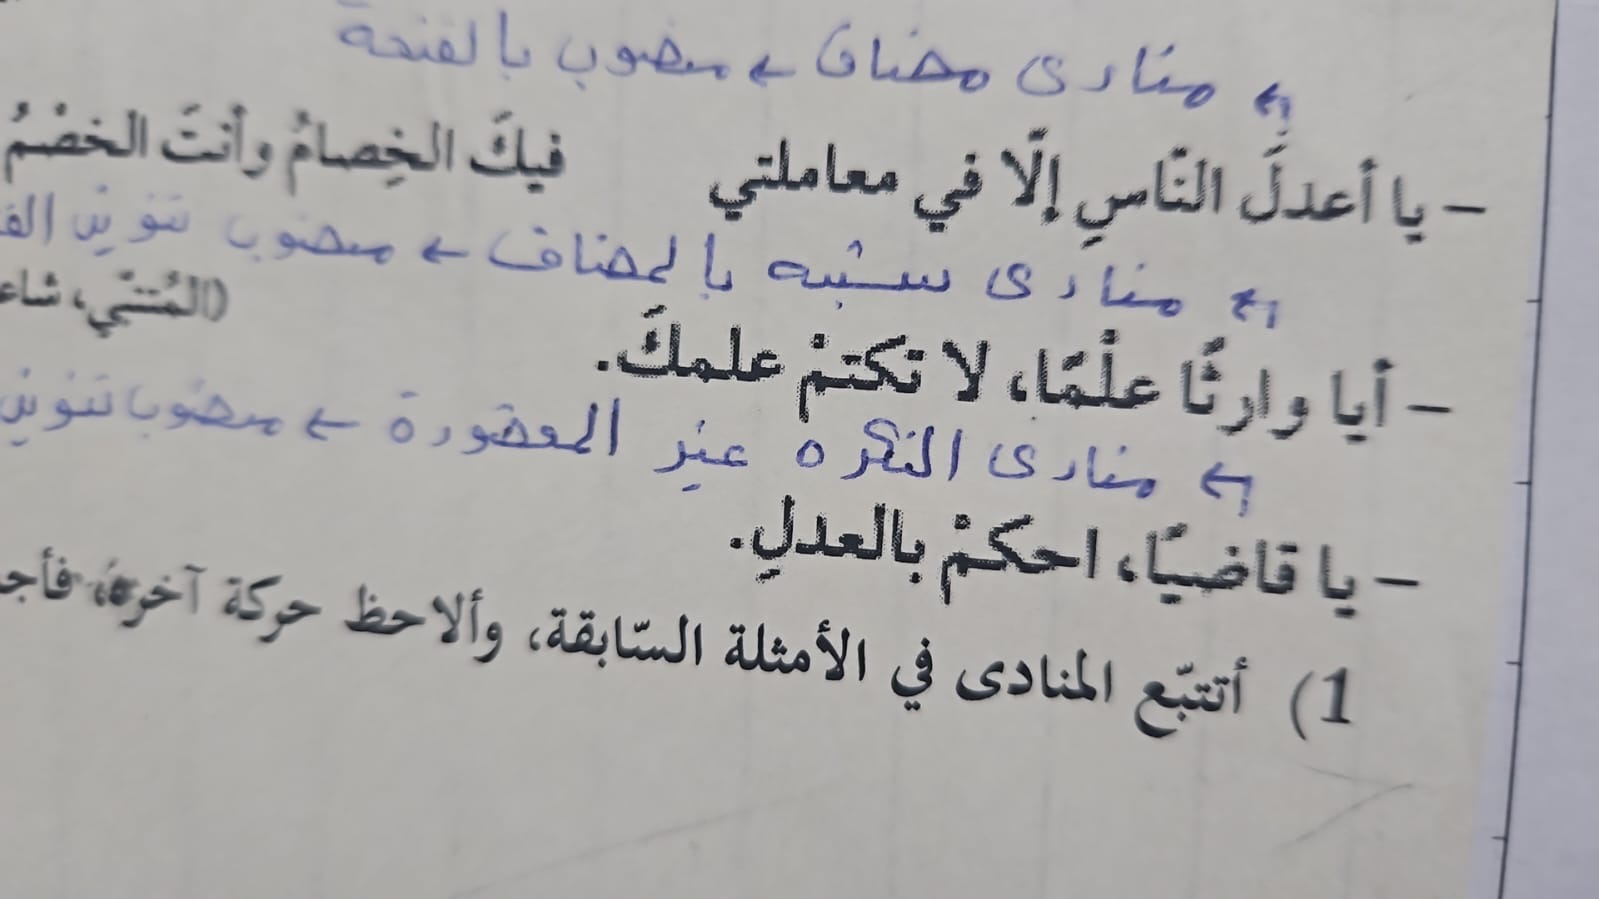 منادى مضاف ← منصوب بالفتحة
– يا أعدلَ النّاسِ إلّا في معاملتي فيكَ الخِصامُ وأنتَ الخصْمُ
منادى شبيه بالمضاف ← منصوب تنوين
(المُتنبّي، شاع
– أيا وارثًا علْمًا، لا تكتمْ علمكَ.
منادى النكره غير المقصودة ← منصوب تنوين
– يا قاضيًا، احكمْ بالعدلِ.
1) أتتبّع المنادى في الأمثلة السّابقة، وألاحظ حركة آخره، فأجـ